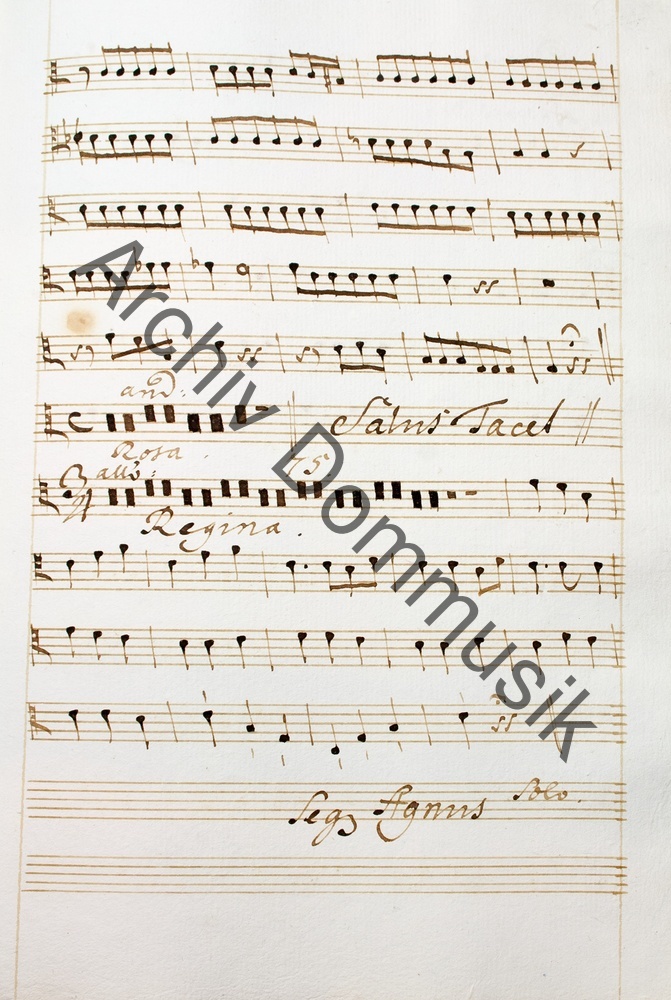 and:
Salus Tacet
Rosa.
allo:
75
3
4
Regina.
Seq Agnus Solo.
Archiv Dommusik